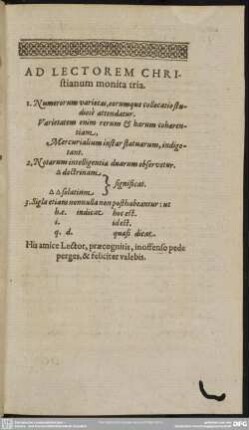 AD LECTOREM CHRI-
stianum monita tria.
1. Numerorum varietas, eorumque collocatio stu-
diosè attendatur.
Varietatem enim rerum & harum cohaeren-
tiam,
Mercurialium instar statuarum, indigi-
tant.
2. Notarum intelligentia duarum observetur.
△ doctrinam
significat.
△△ solatium
3. Sigla etiam nonnulla non posthabeantur: ut
h.e. indicat hoc est.
i. id est.
q. d. quasi dicat.
His amice Lector, præcognitis, inoffenso pede
perges, & feliciter valebis.